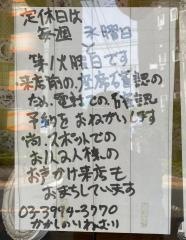 定休日は
毎週 水曜日
と
第1火曜日です
来店前の、座席確認の
ため、電話での、確認
予約をおねがいします
尚、スポットでの
お1人様への
お声かけ来店も
おまちしています
03-3994-3770